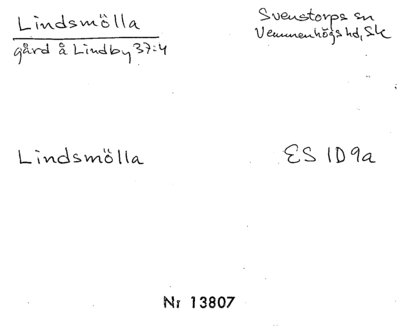 Lindsmölla
gård å Lindby 37:4
Svenstorps sn
Vemmenhögs hd, Sk
Lindsmölla
ES 1D9a
Nr 13807